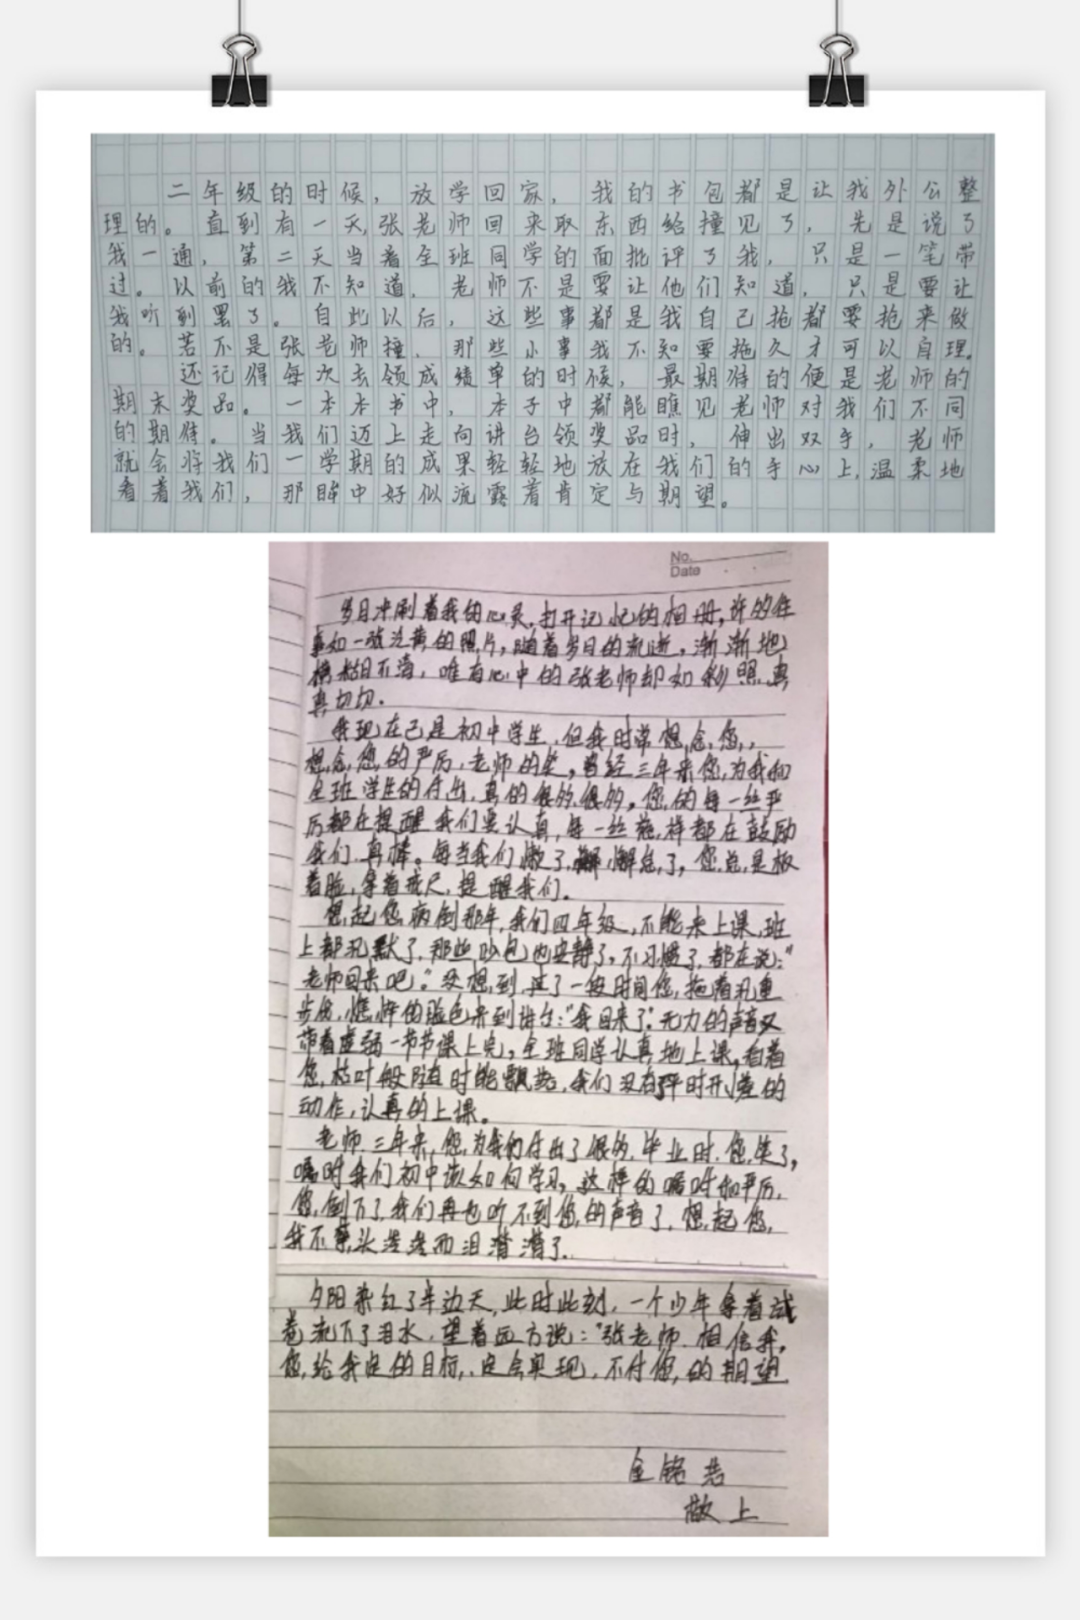 二年级的时候，放学回家，我的书包都是让我外公整
理的。直到有一天，张老师回来取东西给撞见了，先是说了
我一通，第二天当着全班同学的面批评了我，只是一笔带
过。以前的我不知道，老师不是要让他们知道，只是要让
我听到罢了。自此以后，这些事都是我自己拖都要拖来做
的。若不是张老师撞，那些小事我不知要拖久才可以自理。
还记得每次去领成绩单的时候，最期待的便是老师的
期末奖品。一本本书中，本子中都能瞧见老师对我们不同
的期待。当我们迈上走向讲台领奖品时，伸出双手，老师
就会将我们一学期的成果轻轻地放在我们的手心上，温柔地
看着我们，那眸中好似流露着肯定与期望。
No.
Date
岁月冲刷着我的心灵，打开记忆的相册，许多往
事如一张泛黄的照片，随着岁月的流逝，渐渐地
模糊不清，唯有心中的张老师却如彩照真
真切切。
我现在已是初中学生，但我时常想念您，
想念您的严厉，老师的笑。曾经三年来您为我和
全班学生的付出，真的很多很多。您的每一丝严
厉都在提醒我们要认真，每一丝慈祥都在鼓励
我们真棒。每当我们懒了，懈怠了，您总是板
着脸，拿着戒尺，提醒我们。
想起您病倒那年，我们四年级，不能来上课，班
上都沉默了，那些吵包也安静了，不习惯了，都在说："
老师回来吧"。没想到过了一段时间您，拖着沉重
步伐，憔悴的脸色来到讲台："我回来了"。无力的声音又
带着虚弱一节节课上完。全班同学认真地上课，看着
您，枯叶般随时能飘落，我们没有平时开小差的
动作，认真的上课。
老师，三年来，您为我们付出了很多，毕业时，您笑了，
嘱咐我们初中该如何学习。这样的嘱咐和严厉，
您倒下了，我们再也听不到您的声音了，想起您，
我不禁头埋而泪潸潸了。
夕阳染红了半边天，此时此刻，一个少年拿着试
卷流下了泪水，望着远方说："张老师，相信我，
您给我定的目标，定会实现，不付您的期望
全铭浩
敬上